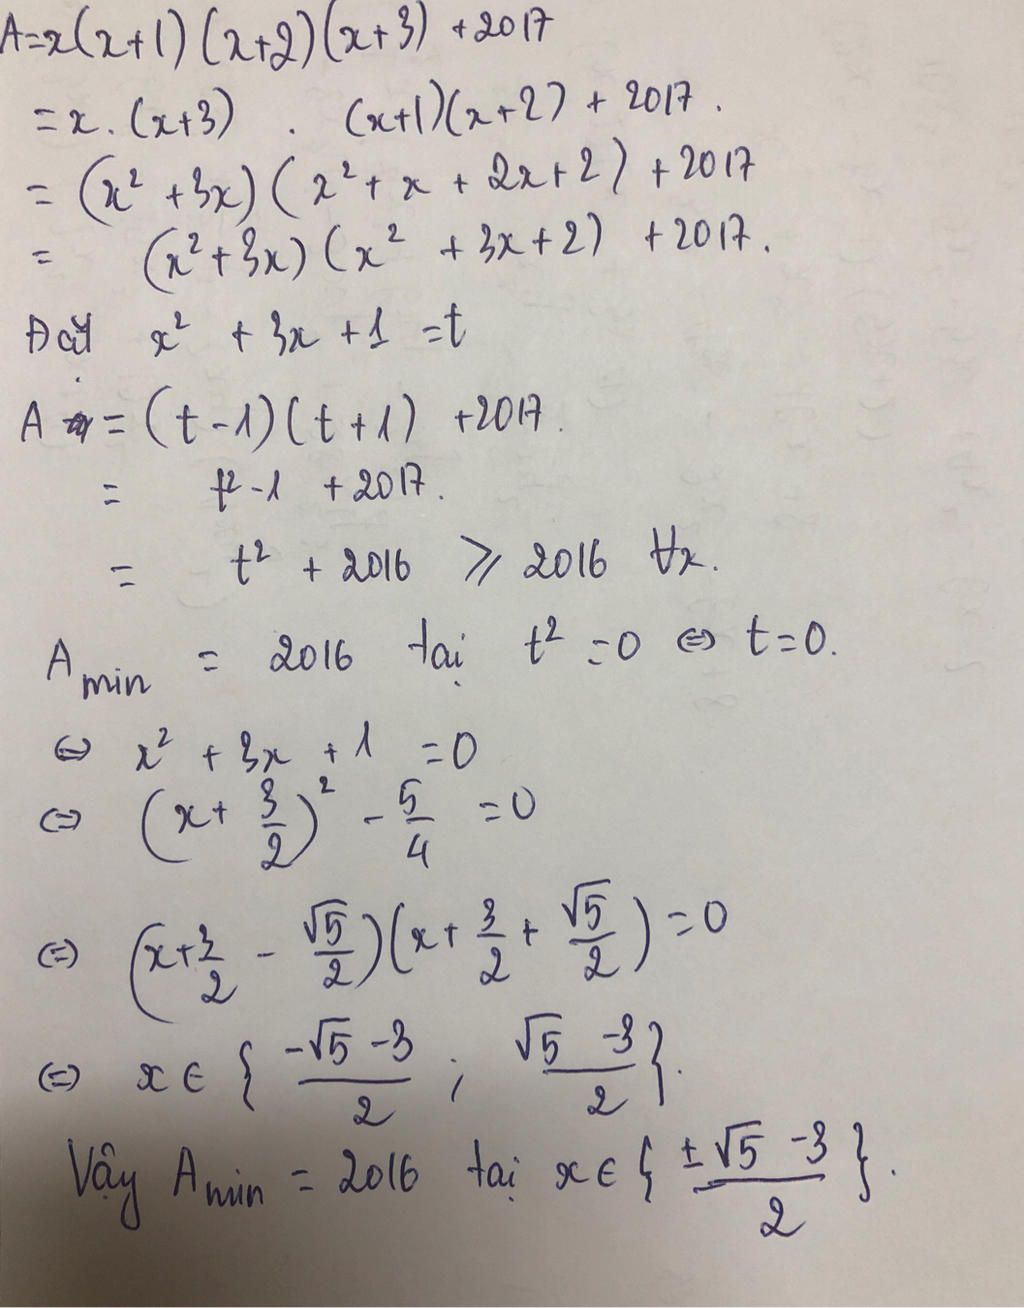 A=x(x+1)(x+2)(x+3) +2017
=x.(x+3) . (x+1)(x+2) + 2017.
= (x² +3x)(x²+ x + 2x+2) +2017
= (x²+3x)(x² +3x+2) +2017.
Đặt x² +3x +1 =t
A = (t-1)(t+1) +2017.
= t²-1 +2017.
= t² + 2016 ⩾ 2016 ∀x.
A min = 2016 tại t² =0 ⇔ t=0.
⇔ x² + 3x + 1 =0
⇔ (x+ 3/2)² - 5/4 =0
⇔ (x+3/2 - √5/2)(x+ 3/2 + √5/2) =0
⇔ x ∈ { (-√5 -3)/2 ; (√5 -3)/2 }.
Vậy A min = 2016 tại x ∈ { (±√5 -3)/2 }.